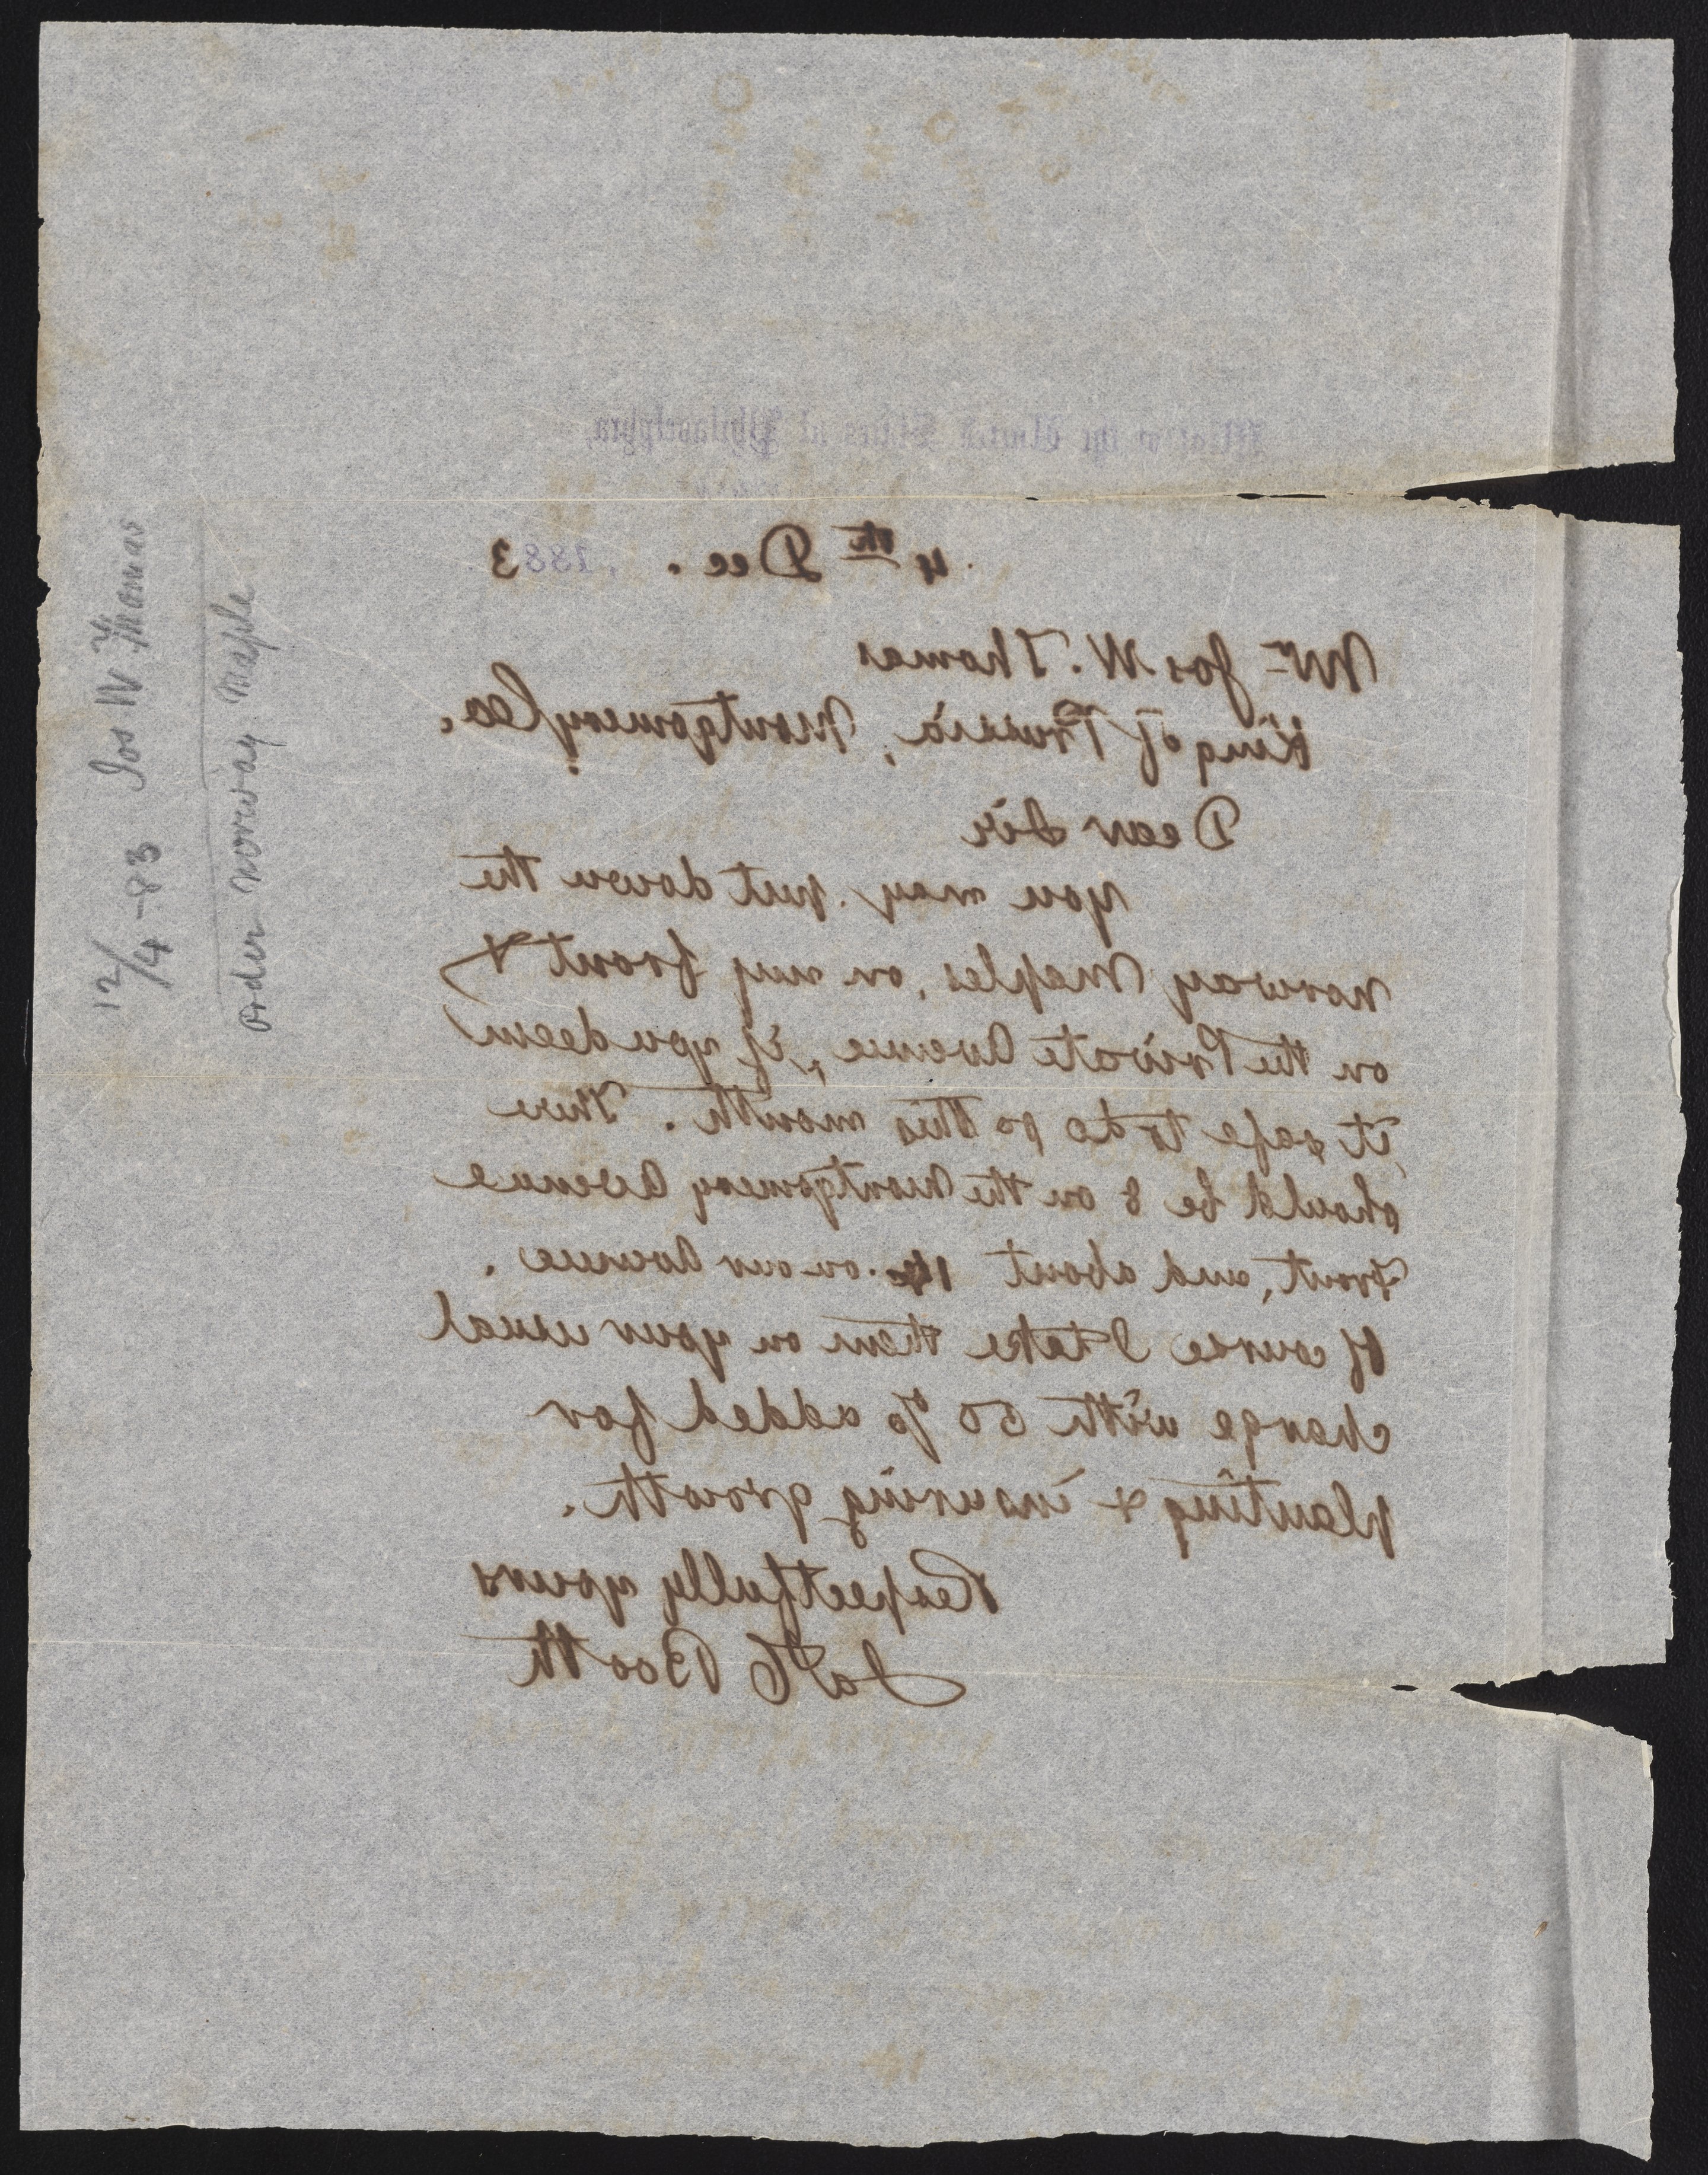 Mint of the United States at Philadelphia,
4th Dec. , 1883
Mr Jos W. Thomas
King of Prussia, Montgomery Co.
Dear Sir
You may put down the
Norway Maples, on my front &
on the Private Avenue, if you deem
it safe to do so this month. There
should be 8 on the Montgomery Avenue
Front, and about on our Avenue.
Of course I take them on your usual
charge with 50 % added for
planting & insuring growth.
Respectfully yours
Jas C Booth
12/4-83 Jos W Thomas
Order Norway Maple